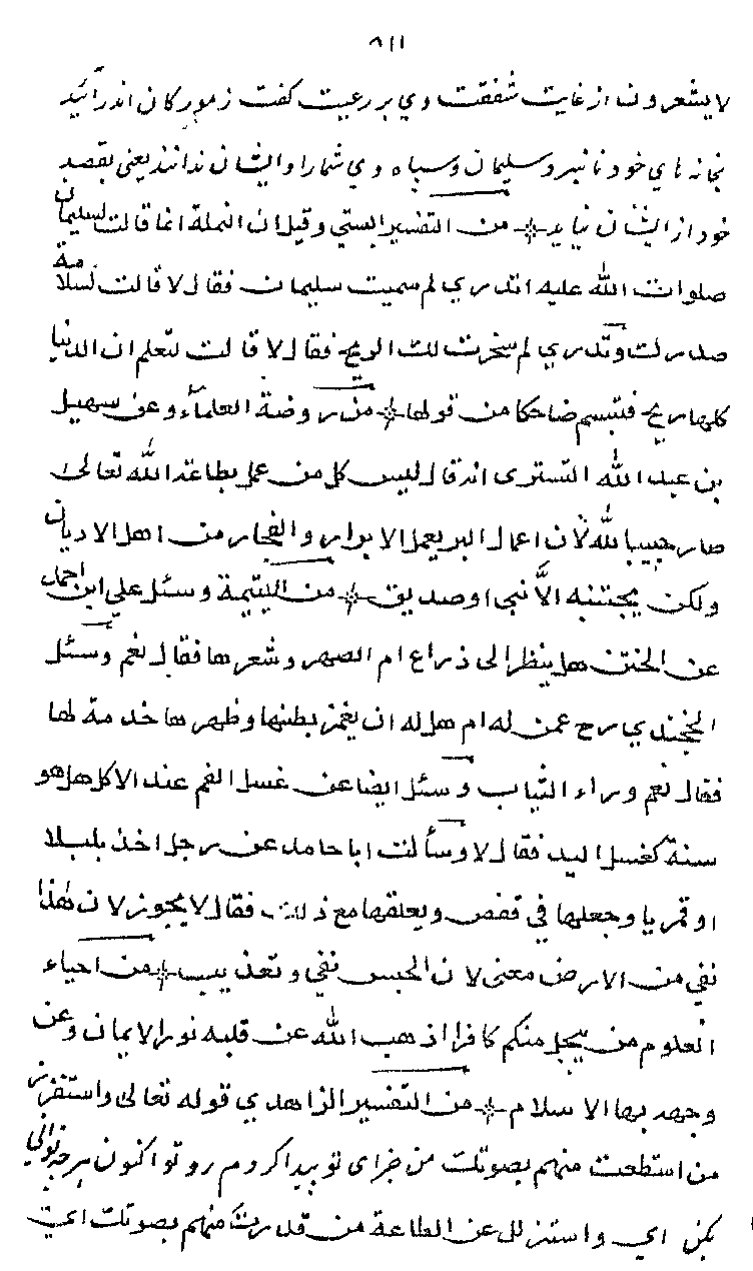 ٨١١
لا يشعرون از غايت شفقت وي بر رعيت كفت ز موركان اندرآئيد
بخانه هاي خود تا نبرد سليمان وسپاه وي شمارا وايشان ندانند يعنى بقصد
خود از ايشان نيايد من التفسير البستي وقيل ان النملة انما قالت لسليمان
صلوات الله عليه اتدري لم سميت سليمان فقال لا قالت لسلامة
صدرك وتدري لم سخرت لك الريح فقال لا قالت لتعلم ان الدنيا
كلها ريح فتبسم ضاحكا من قولها من روضة العلماء وعن سهيل
بن عبد الله التسترى انه قال ليس كل من عمل بطاعة الله تعالى
صار حبيبا لله لان اعمال البر يعمل الابرار والفجار من اهل الاديان
ولكن يجتنبه الا نبى او صديق من اليتيمة وسئل علي ابن احمد
عن الختن هل ينظر الى ذراع ام الصهر وشعرها فقال نعم وسئل
الخجندي رح عمن له ام هل له ان يغمز بطنها وظهرها خدمة لها
فقال نعم وراء الثياب وسئل ايضا عن غسل الفم عند الاكل هل هو
سنة كغسل اليد فقال لا وسألت ابا حامد عن رجل اخذ بلبلا
او قمريا وجعلها في قفص ويعلقها مع ذلك فقال لا يجوز لان هذا
نفي من الارض معنى لان الحبس نفي وتعذيب من احياء
العلوم من يبجل منكم كافرا اذهب الله عن قلبه نور الايمان وعن
وجهه بها الاسلام من التفسير الزاهدي قوله تعالى واستفزز
من استطعت منهم بصوتك من جزاى تو پيدا كردم رو تو اكنون هرچه تواني
بكن اي واستنزل عن الطاعة من قدرت منهم بصوتك اي